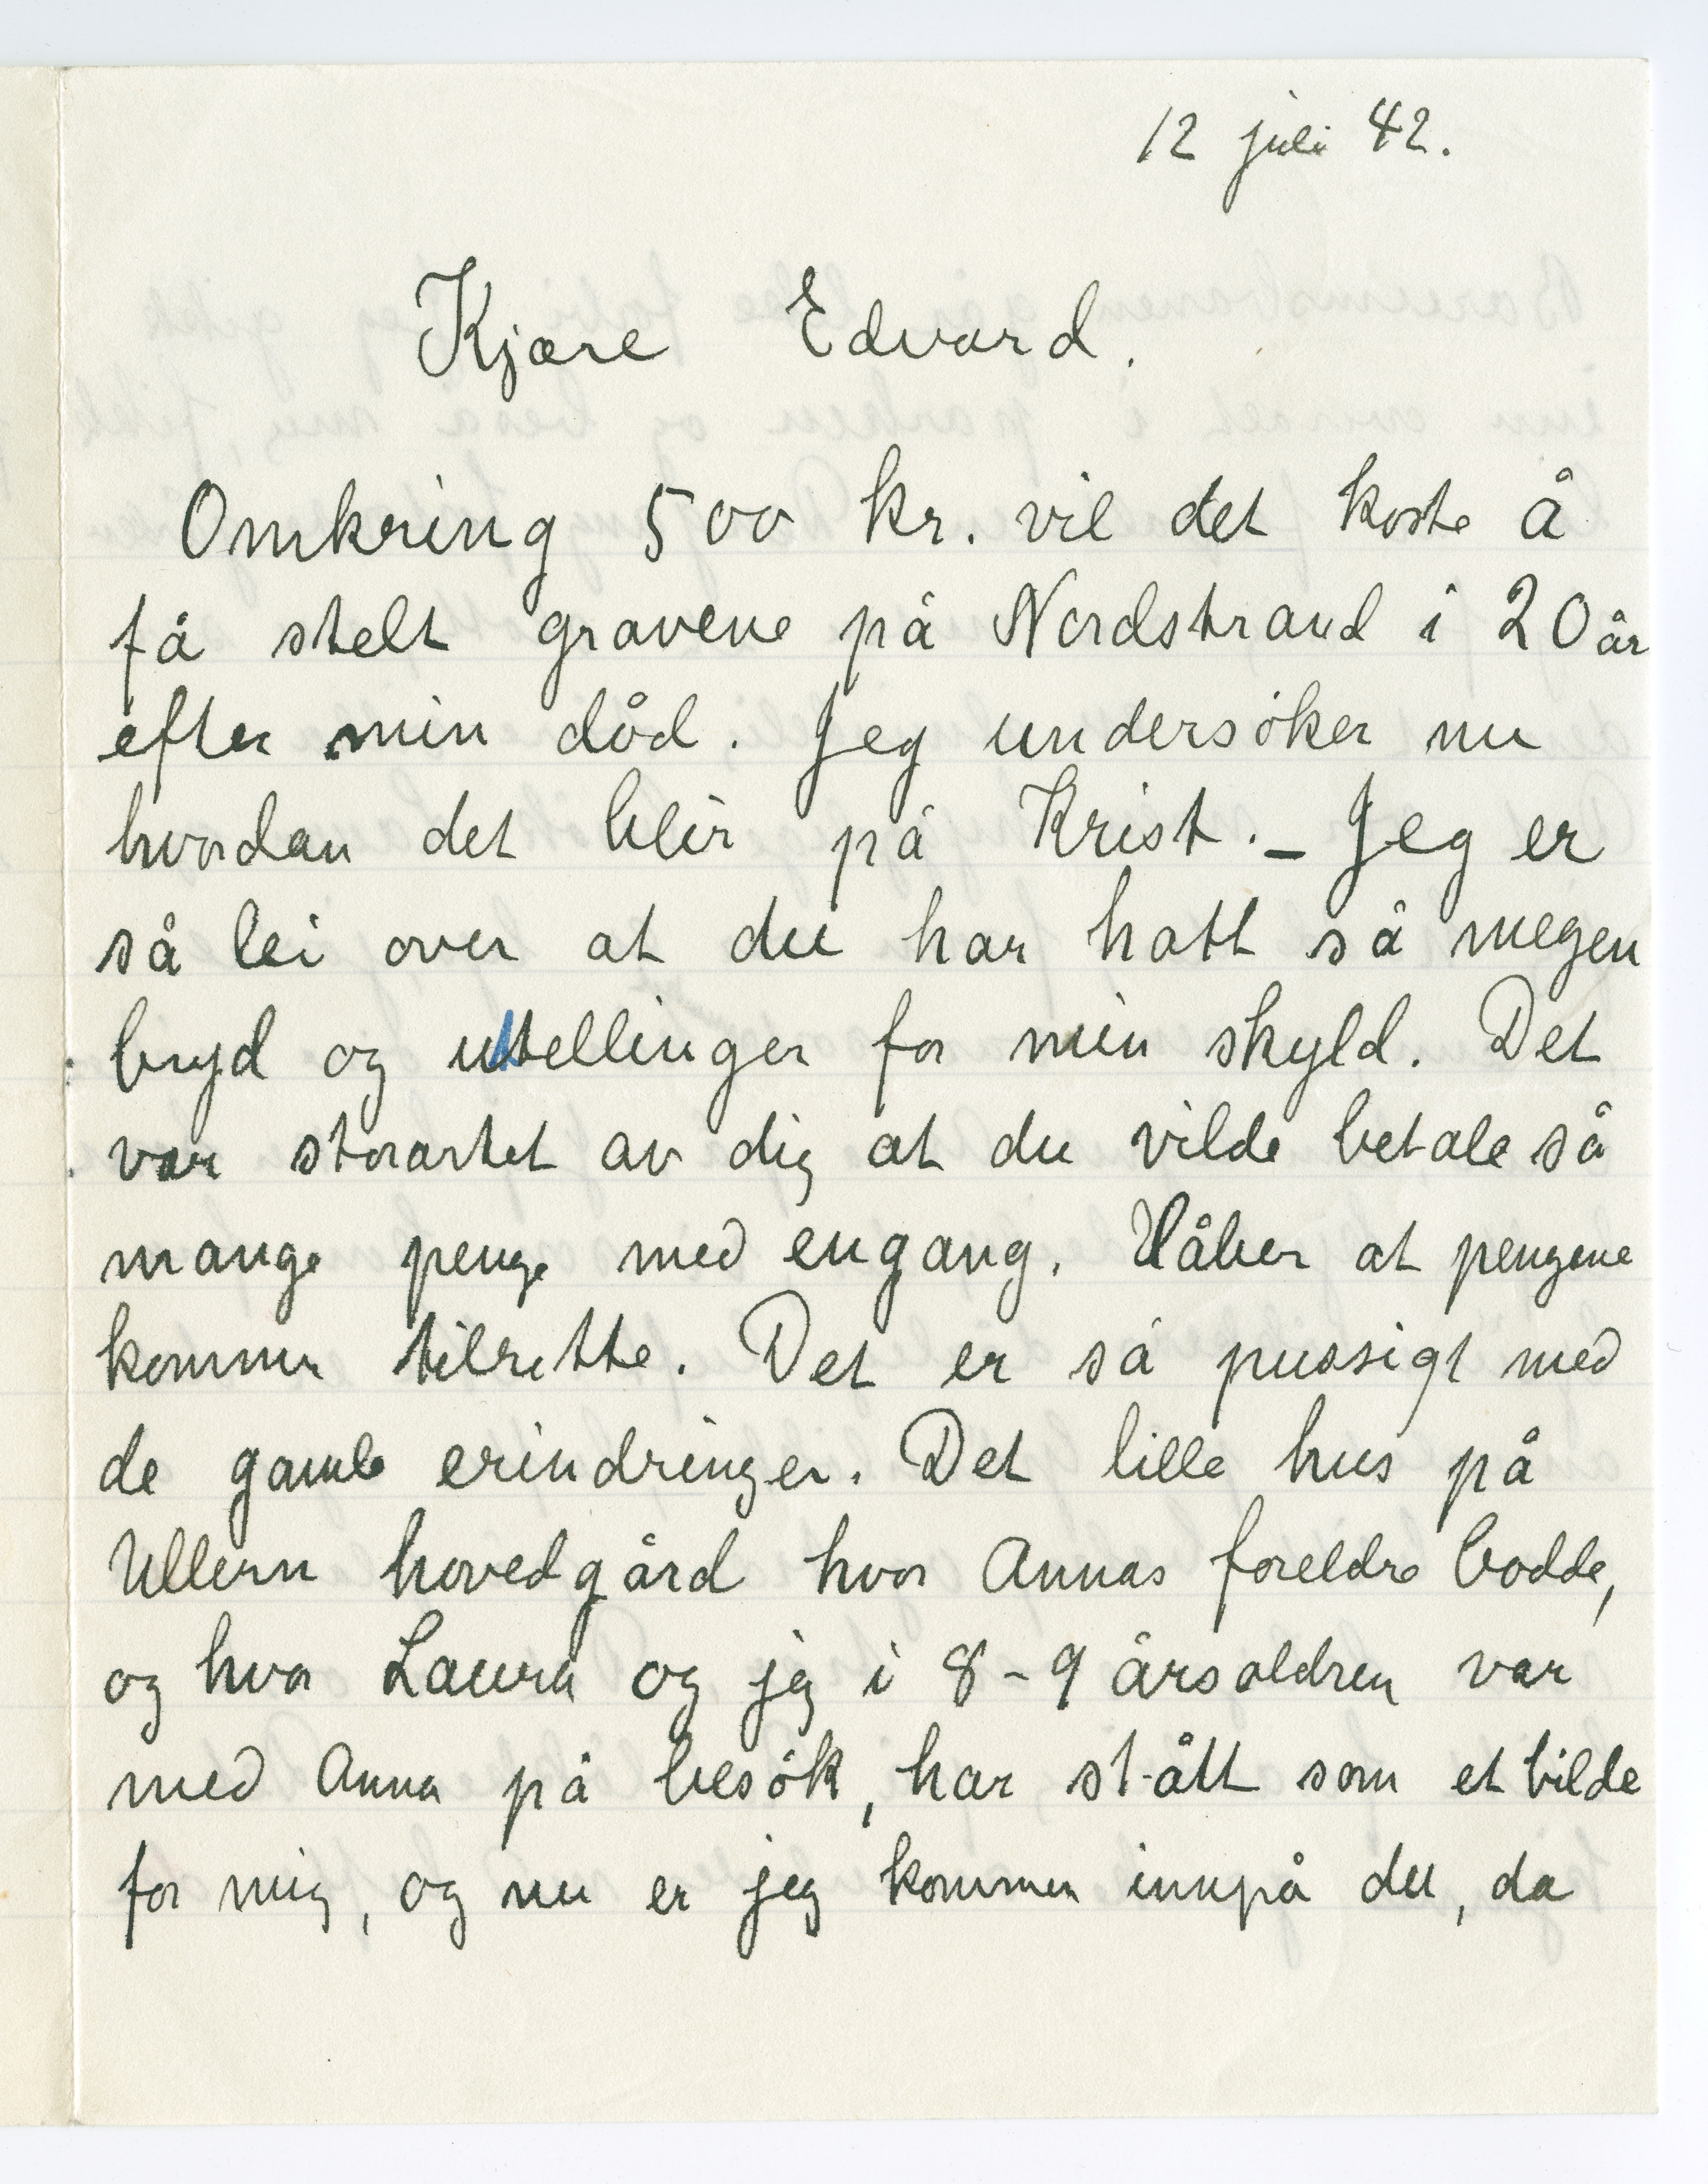 12 juli 42.
Kjære Edvard.
Omkring 500 kr. vil det koste å
få stelt gravene på Nordstrand i 20 år
efter min död. Jeg undersöker nu
hvordan det blir på Krist. – Jeg er
så lei over at du har hatt så megen
bryd og utellinger for min skyld. Det
var storartet av dig at du vilde betale så
mange penge med engang. Håber at pengene
kommer tilrette. Det er så pussigt med
de gamle erindringer. Det lille hus på
Ullern hovedgård hvor Annas foreldre bodde,
og hvor Laura og jeg i 8-9 årsaldren var
med Anna på besök, har stått som et bilde
for mig, og nu er jeg kommen innpå det, da